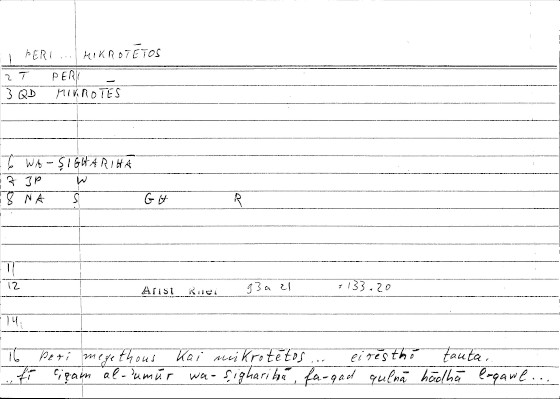 1 PERI ... MIKROTĒTOS
2 T PERI
3 QD MIKROTĒS
6 WA-ṢIGHARIHĀ
7 JP W
8 NA Ṣ GH R
11
12 Arist Rhet 93a 21 = 133.20
14
16 peri megethous kai mikrotētos ... eirēsthō tauta.
„fī ʿiẓam al-ʾumūr wa-ṣigharihā, fa-qad qulnā hādhā l-qawl ...